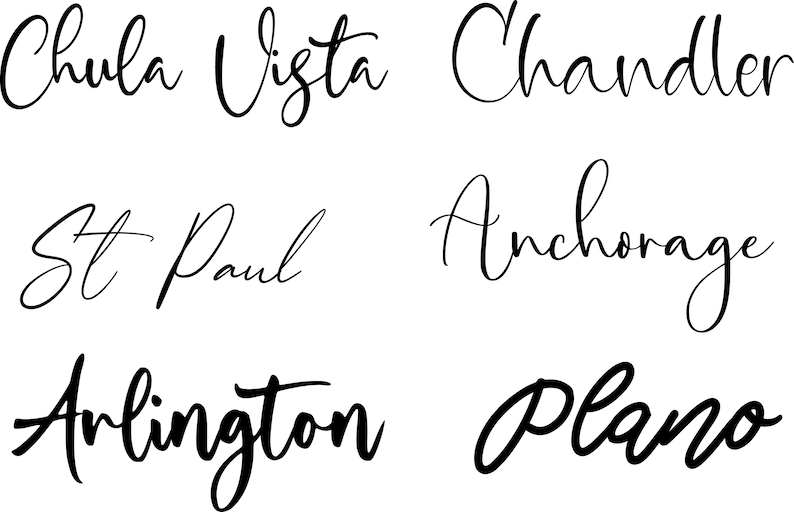 Chula Vista
Chandler
St Paul
Anchorage
Arlington
Plano